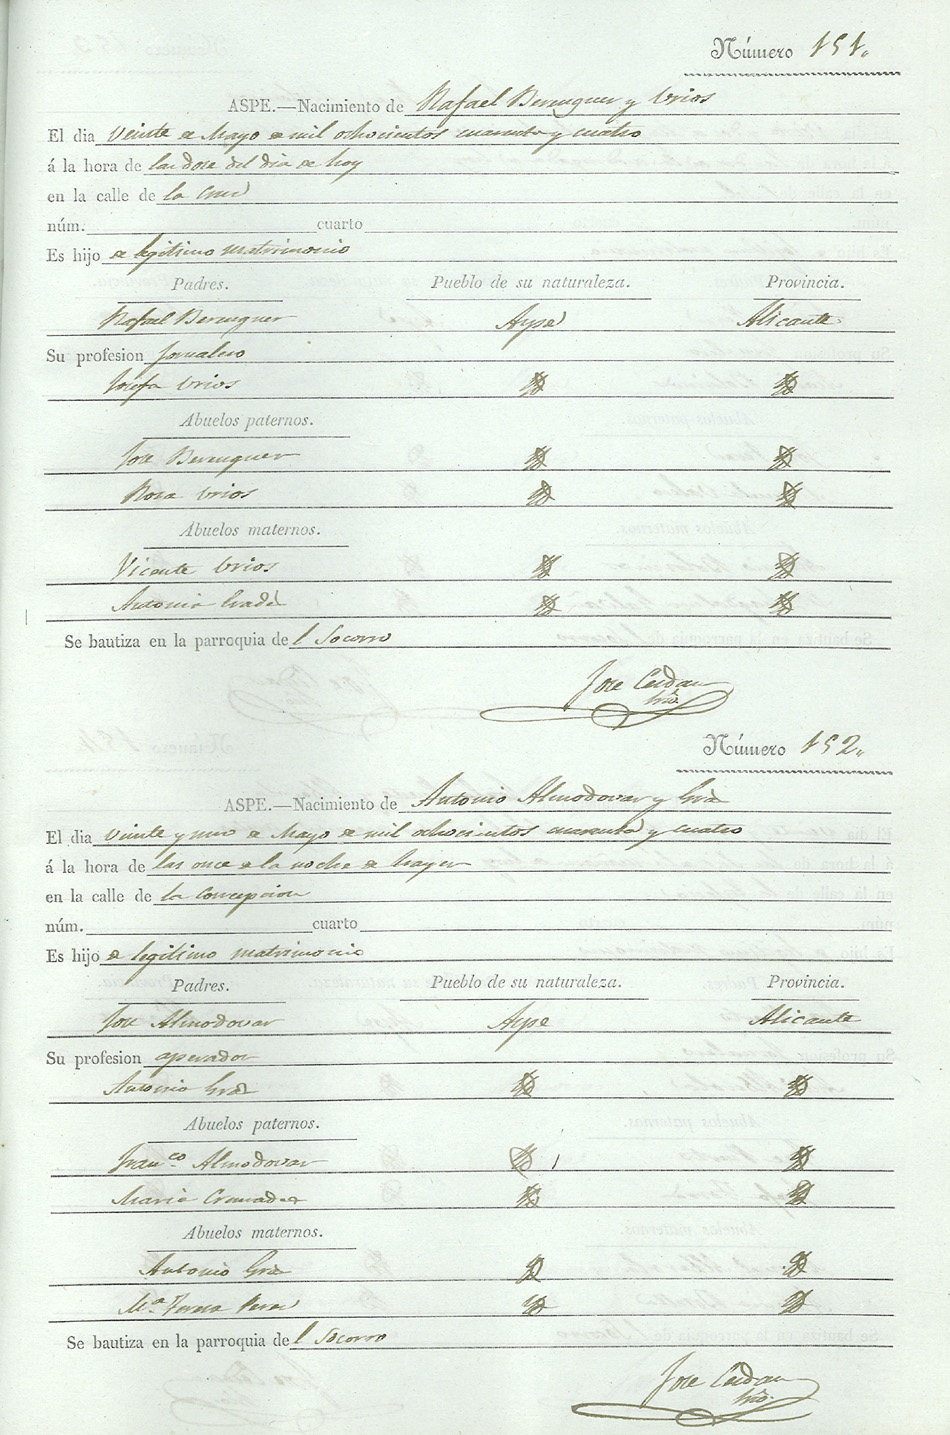 Número 151.
ASPE.—Nacimiento de Rafael Berenguer y Urios
El dia veinte de Mayo de mil ochocientos cuarenta y cuatro
á la hora de las dose del dia de hoy
en la calle de la Cruz
núm. cuarto
Es hijo de legitimo matrimonio
Padres. Pueblo de su naturaleza. Provincia.
Rafael Berenguer Aspe Alicante
Su profesion jornalero
Josefa Urios Yd Yd
Abuelos paternos.
Jose Berenguer Yd Yd
Rosa Urios Yd Yd
Abuelos maternos.
Vicente Urios Yd Yd
Antonia Yd Yd
Se bautiza en la parroquia del Socorro
Jose Cerdan
Número 152.
ASPE.—Nacimiento de Antonio Almodovar y Grá
El dia veinte y uno de Mayo de mil ochocientos cuarenta y cuatro
á la hora de las once de la noche de hayer
en la calle de la Concepcion
núm. cuarto
Es hijo de legitimo matrimonio
Padres. Pueblo de su naturaleza. Provincia.
Jose Almodovar Aspe Alicante
Su profesion aperador
Antonia Grá Yd Yd
Abuelos paternos.
Franco. Almodovar Yd Yd
Maria Cremades Yd Yd
Abuelos maternos.
Antonio Grá Yd Yd
Ma. Teresa Yd Yd
Se bautiza en la parroquia del Socorro
Jose Cerdan